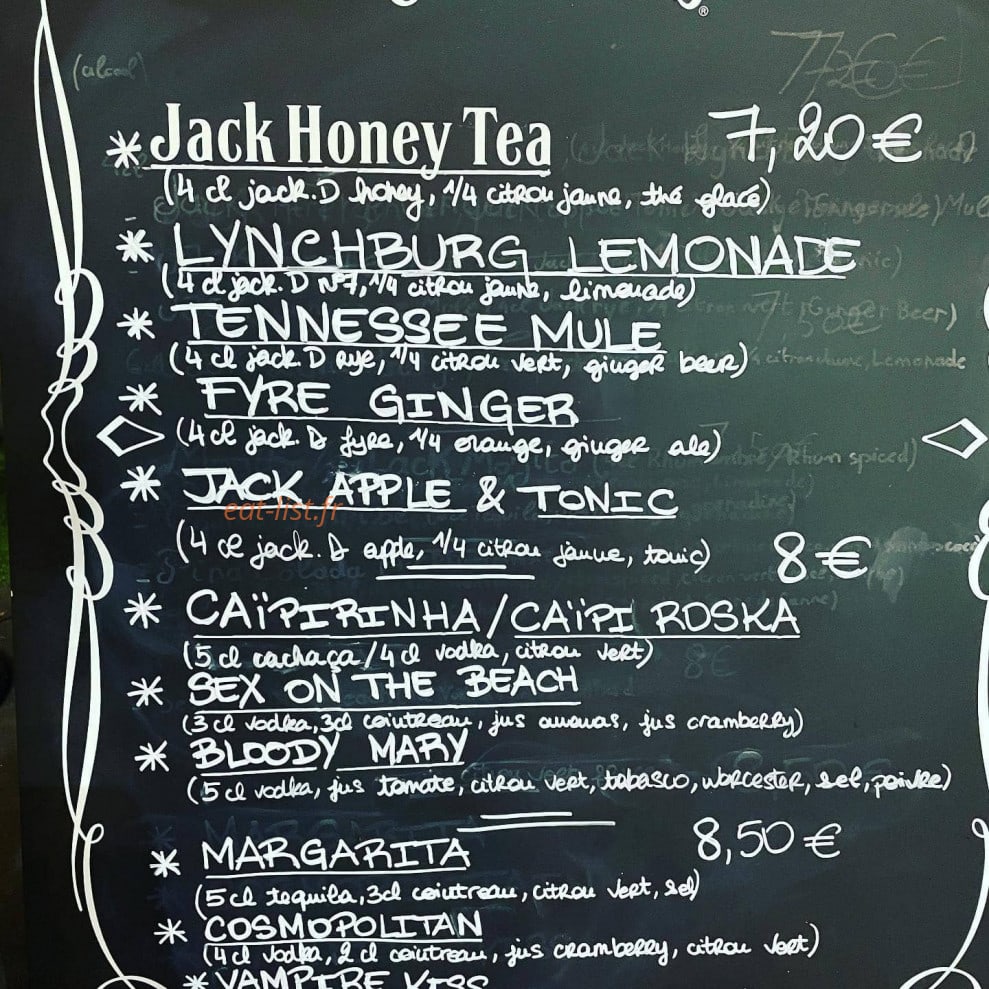 (alcool)
* Jack Honey Tea 7,20 €
(4 cl jack.D honey, 1/4 citron jaune, thé glacé)
* LYNCHBURG LEMONADE
(4 cl jack. D N°7, 1/4 citron jaune, limonade)
* TENNESSEE MULE
(4 cl jack. D Rye, 1/4 citron vert, ginger beer)
* FYRE GINGER
(4 cl jack. D fyre, 1/4 orange, ginger ale)
* JACK APPLE & TONIC
eat-list.fr
(4 cl jack. D apple, 1/4 citron jaune, tonic) 8 €
* CAÏPIRINHA/CAÏPI ROSKA
(5 cl cachaça/4 cl vodka, citron vert)
* SEX ON THE BEACH
(3 cl vodka, 3cl cointreau, jus ananas, jus cramberry)
* BLOODY MARY
(5 cl vodka, jus tomate, citron vert, tabasco, worcester, sel, poivre)
8,50 €
* MARGARITA
(5 cl tequila, 3cl cointreau, citron vert, sel)
* COSMOPOLITAN
(4cl vodka, 2 cl cointreau, jus cramberry, citron vert)
* VAMPIRE KISS